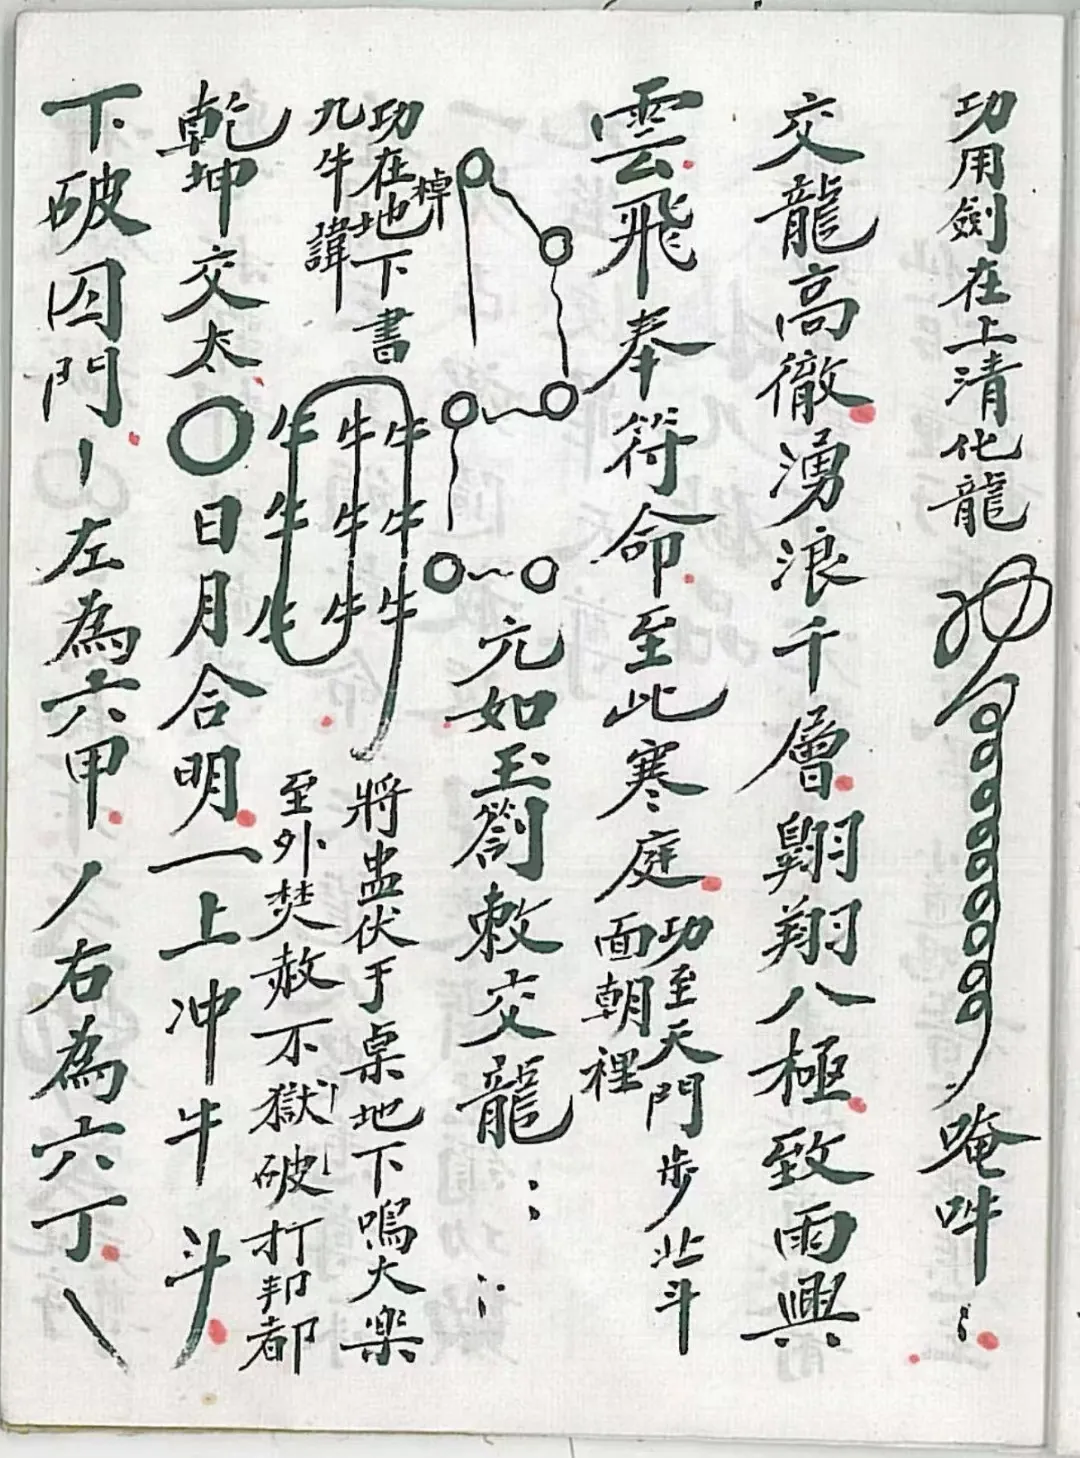 功用劍在上清化龍 唵吽
交龍高徹湧浪千層翺翔八極致雨興
雲飛奉符命至此寒庭
功至天門步北斗
面朝裡
元如玉劄敕交龍
功在地下書
九牛諱
牛牛牛
牛牛牛
牛牛牛
將盅伏于桌地下鳴大樂
至外焚赦不獄破打邦都
乾坤交太〇日月合明一上冲牛斗
下破囚門丨左為六甲丿右為六丁㇏